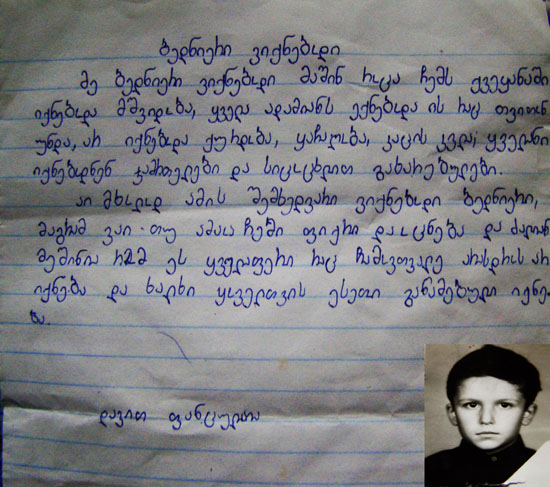 ბედნიერი ვიქნებოდი
მე ბედნიერი ვიქნებოდი მაშინ როცა ჩემს ქვეყანაში
იქნებოდა მშვიდობა, ყველა ადამიანს ექნებოდა ის რაც თვითონ
უნდა, არ იქნებოდა ქურდობა, ყაჩაღობა, კაცის კვლა, ყველანი
იქნებოდნენ ჯამრთელები და სიცოცხლით გახარებულები.
აი მხოლოდ ამის შემხედვარი ვიქნებოდი ბედნიერი,
მაგრამ ვაი თუ ამაოა ჩემი ფიქრი და ოცნება და ძალიან
მეშინია რომ ეს ყველაფერი რაც ჩამოვთვალე არასდროს არ
იქნება და ხალხი ყოველთვის ესეთი განამებული იქნე-
ბა.
დავით ფანცულაია